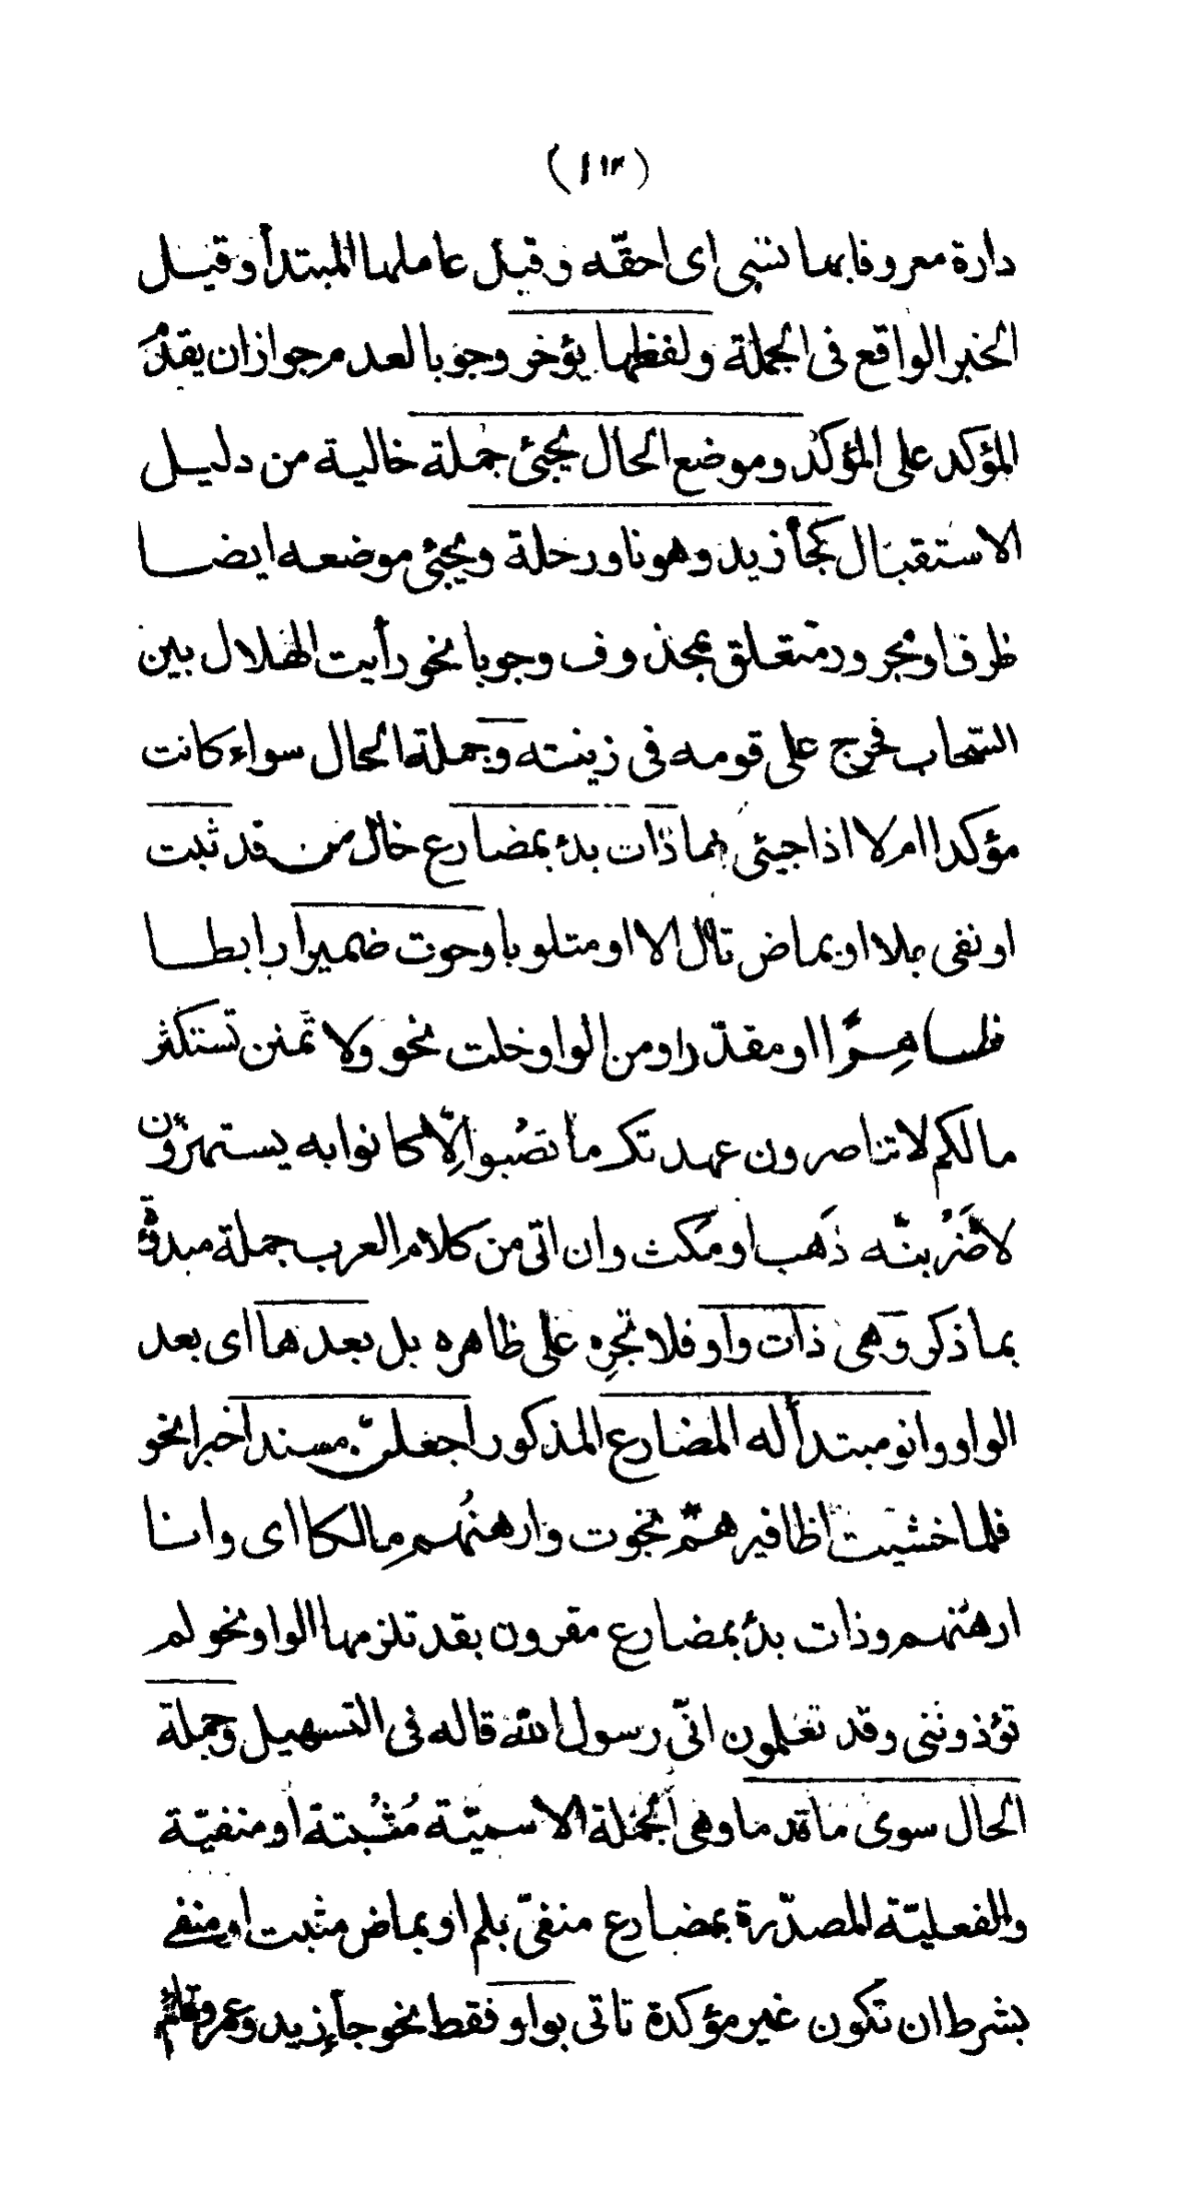 (١١٣)
دارة معروفا بها نسبى اى احقّه وقيل عاملها المبتدأ وقيل
الخبر الواقع فى الجملة ولفظها يؤخر وجوبا لعدم جواز ان يقدّم
المؤكد على المؤكد وموضع الحال يجيئ جملة خالية من دليل
الاستقبال كجأ زيد وهو ناو رحلة ويجيئ موضعه ايضا
ظرفا او مجرور متعلق بمحذوف وجوبا نحو رأيت الهلال بين
السّحاب فخرج على قومه فى زينته وجملة الحال سواء كانت
مؤكدا ام لا اذا جيئ بها ذات بدء بمضارع خال من قد ثبت
او نفى بلا او بماض تال الا او متلو باو حوت ضميرا رابطا
ظاهِرًا او مقدّرا ومن الواو خلت نحو ولا تمنن تستكثر
مالكم لا تناصرون عهدتك ما تصبو اِلّا كانوا به يستهزؤن
لأضربنّه ذَهب او مَكث وان اتى من كلام العرب جملة مبدؤة
بما ذكر وهى ذات واو فلا تجرِه على ظاهره بل بعدها اى بعد
الواو وانو مبتدأ له المضارع المذكور اجعلنّ مسندا خبرا نحو
فلما خشيت اظافيرهم نجوت وارهنُهم مالكا اى وانا
ارهنهم وذات بدء بمضارع مقرون بقد تلزمها الواو نحو لم
تؤذوننى وقد تعلمون انّى رسول الله قاله فى التسهيل وجملة
الحال سوى ما قدما وهى الجُملة الاسميّة مُثبتة او منفيّة
والفعليّة المصدّرة بمضارع منفىّ بلم او بماض مثبت او منفے
بشرط ان تكون غير مؤكدة تاتى بواو فقط نحو جأ زيد وعمرو قائم